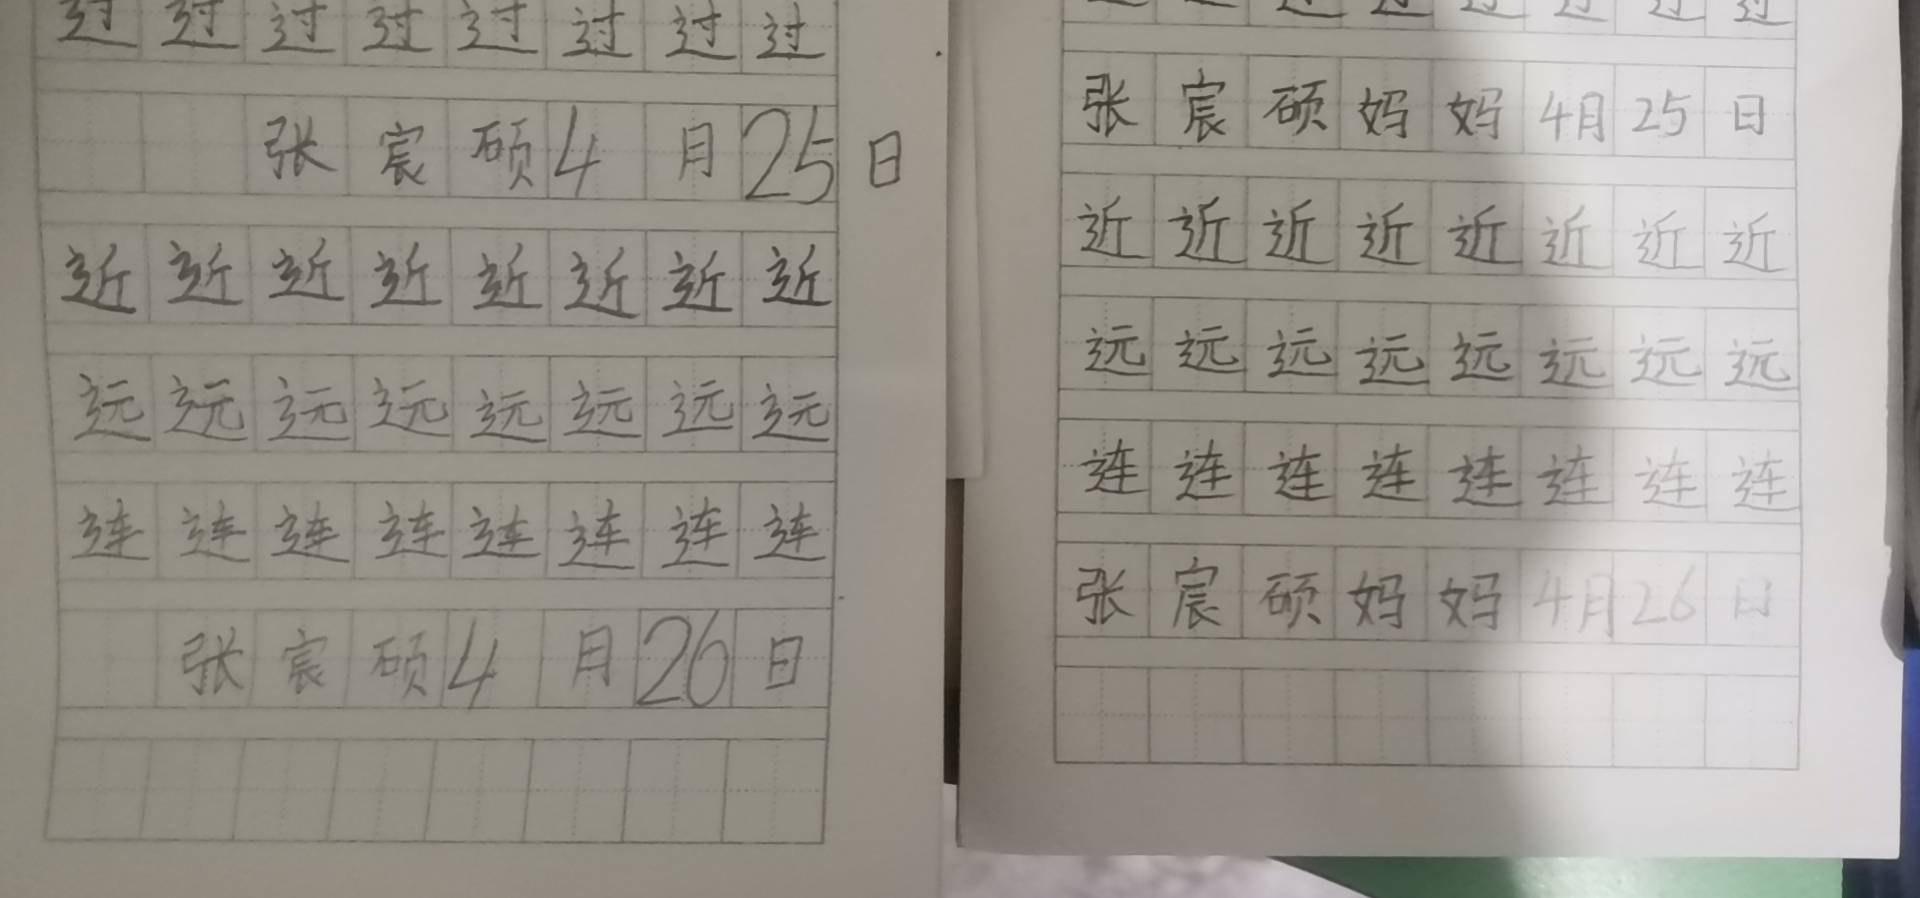 过过过过过过过过
张宸硕4月25日
近近近近近近近近
远远远远远远远远
连连连连连连连连
张宸硕4月26日
过过过过过过过过
张宸硕妈妈4月25日
近近近近近近近近
远远远远远远远远
连连连连连连连连
张宸硕妈妈4月26日